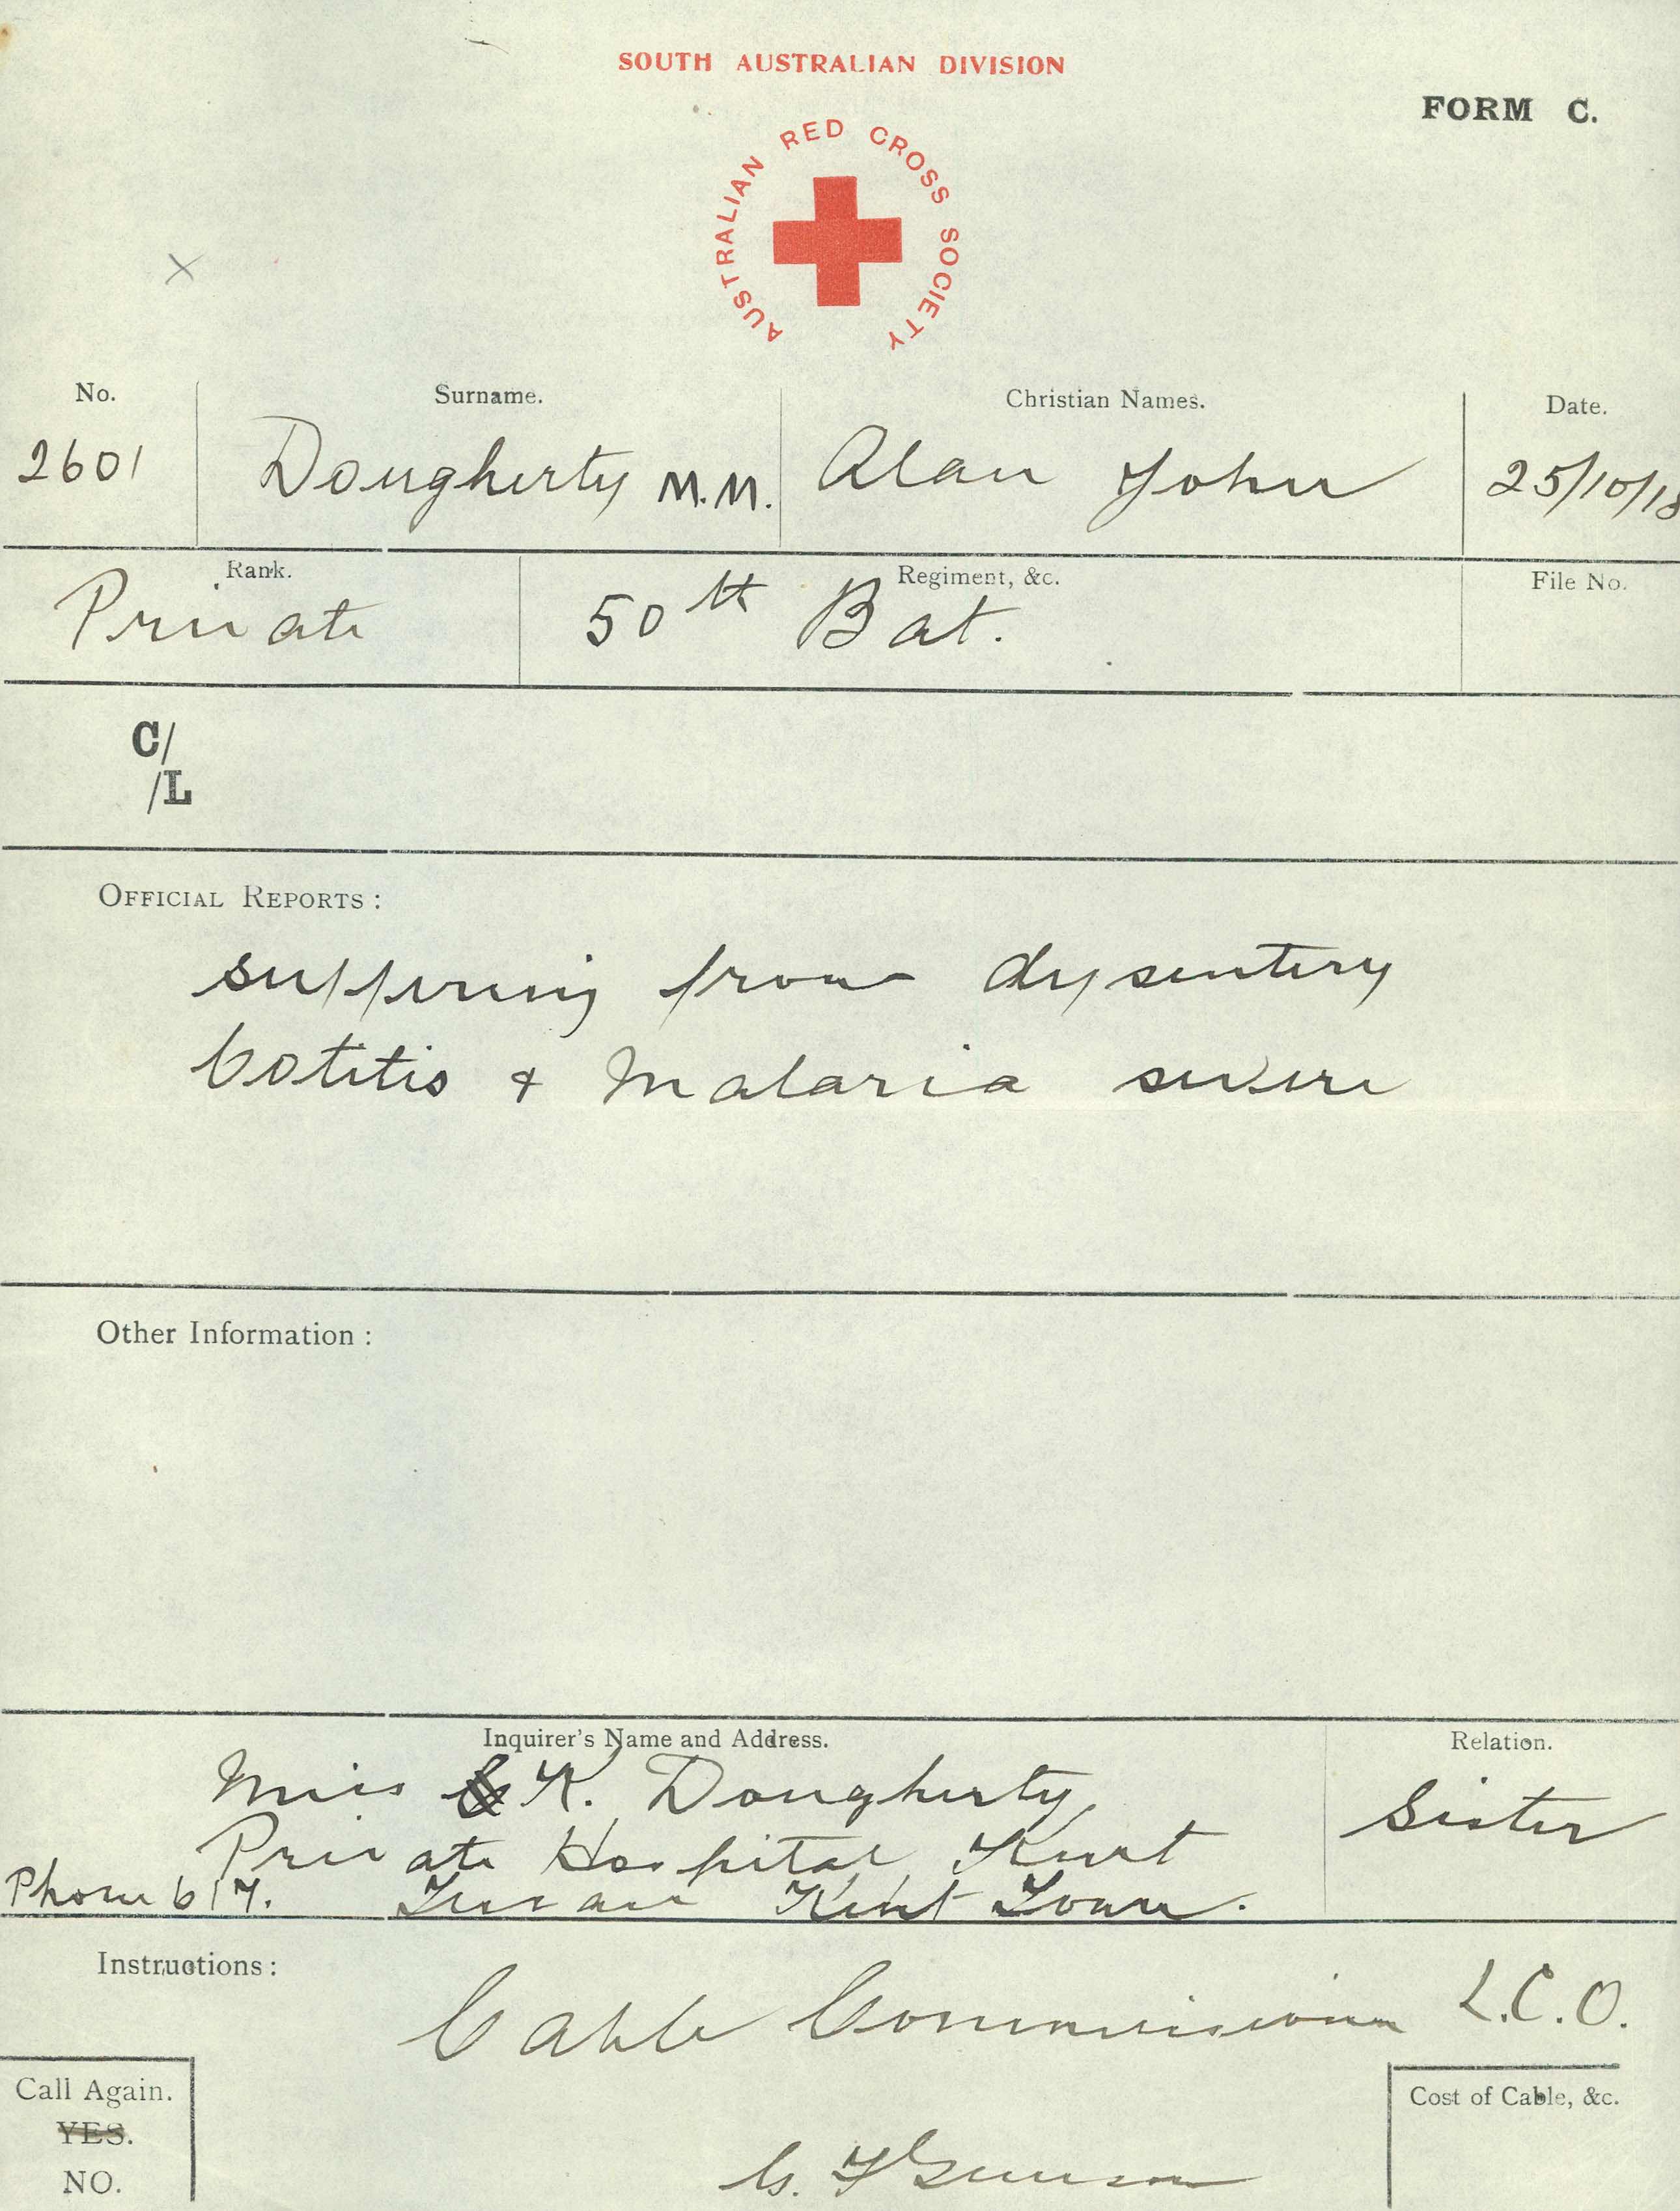 SOUTH AUSTRALIAN DIVISION
FORM C.
AUSTRALIAN RED CROSS SOCIETY
No. Surname. Christian Names. Date.
2601 Dougherty M.M. Alan John 25/10/18
Rank. Regiment, &c. File No.
Private 50th Bat.
C/
/L
OFFICIAL REPORTS:
suffering from dysentery
Cotitis & Malaria severe
Other Information:
Inquirer's Name and Address. Relation.
Miss K. Dougherty, Sister
Private Hospital Kent
Phone 617. Kent Town.
Instructions:
Cable Commissioner L.C.O.
Call Again. Cost of Cable, &c.
YES.
NO.